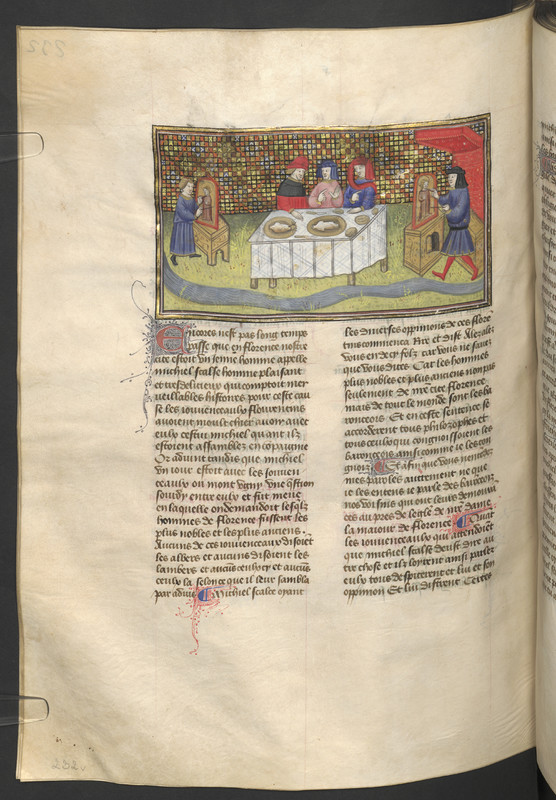 Encores nest pas long temps
passe que en florence nostre
cite estoit vn jenne homme appelle
michiel scalse homme plaisant
et tresdelicieux qui comptoit mer
ueillables histoires pour ceste cau
se les iouuenceaulx flourentins
auoient moult chier auoir auec
eulx cestui michiel quant ilz
estoient assamblez en compaignie
Or aduint tandis que michiel
vn iour estoit auec les iouuen
ceaulx ou mont vgny vne question
sourdy entre eulx et fut meue
en laquelle on demandoit lesquelz
hommes de florence fussent les
plus nobles et les plus anciens
Aucuns de ces iouuenceaulx disoient
les et aucuns disoient les
lambers et aucuns et aucuns
ceulx la selonc que il leur sambla
par aduis Michiel scalse oyant
les diuerses oppinions de ces flore
tins commenca Rire et dist
vous en folz car vous ne sauez
que vous dites Car les hommes
plus nobles et plus anciens non pas
seulement de nostre cite florence
mais de tout le monde sont les ba
ronceois Et en ceste sentence se
accorderent tous philozophes et
tous ceulx qui congnoissoient les
baronceois ainsi comme ie les con
gnois Et afin que vous nentende
mie par les autrement ne que
ie les entens ie parle des baronceois
noz voisins qui ont leurs demoura
ces au pres de leglise de nostre dame
la maiour de florence Quant
les iouuenceaulx qui attendoient
que michiel scalse deust dire au
tre chose et ilz loirent ainsi parler
eulx tous despiterent et lui et son
oppinion Et lui disirent Certes
232